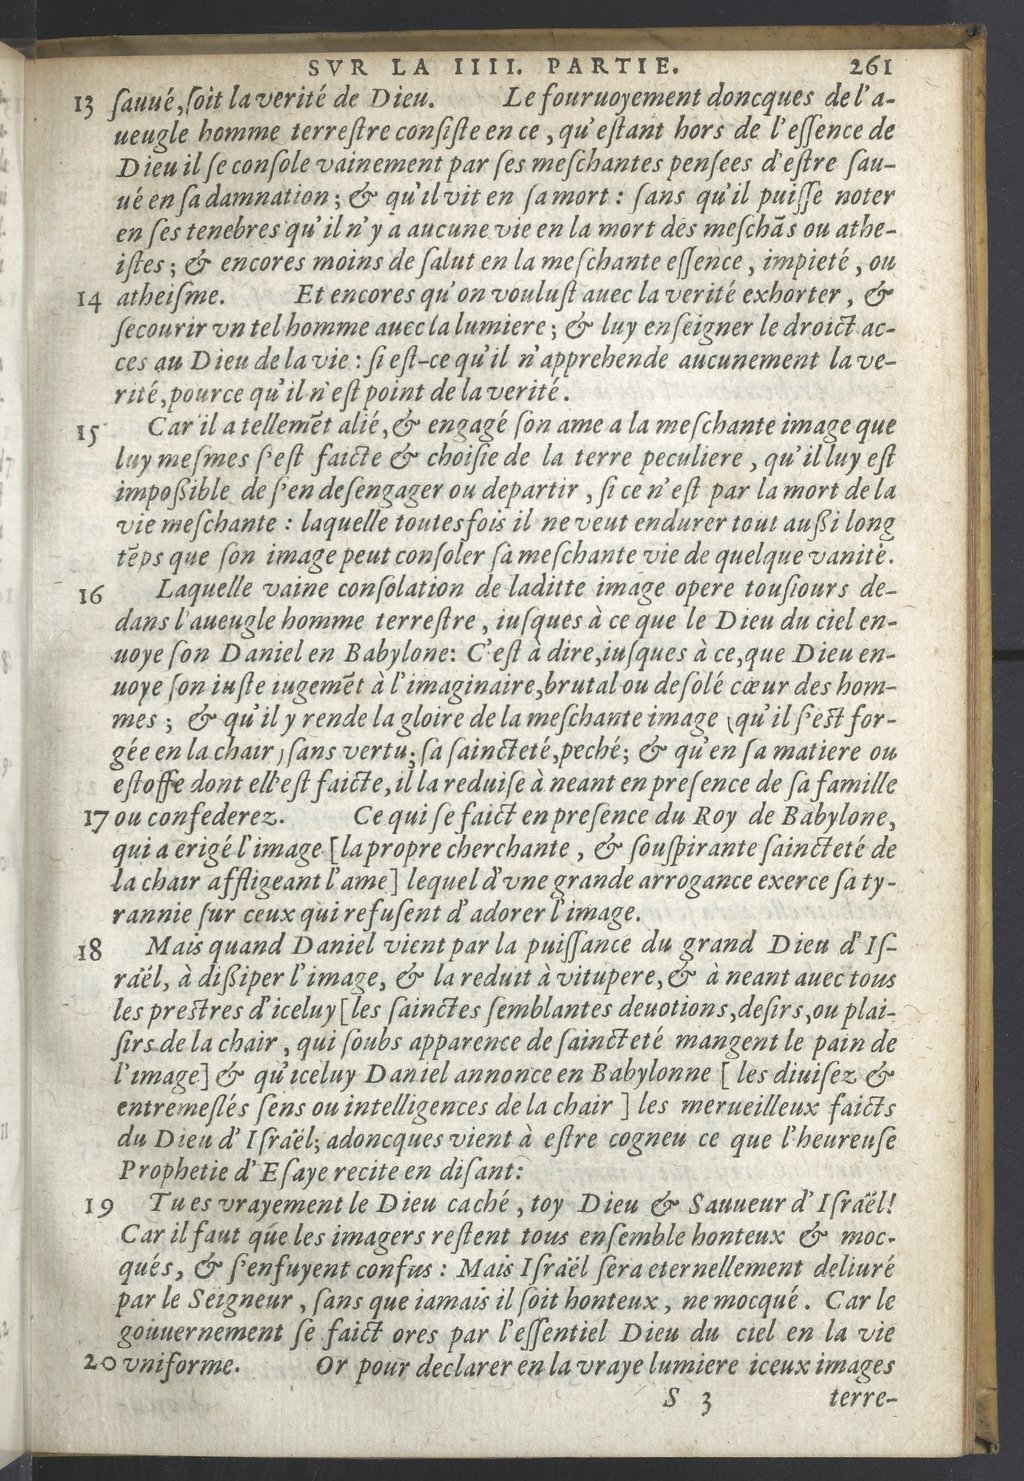 SVR LA IIII. PARTIE. 261
13 ſauué, ſoit la verité de Dieu. Le fouruoyement doncques de l'a-
ueugle homme terreſtre conſiſte en ce, qu'eſtant hors de l'eſſence de
Dieu il ſe conſole vainement par ſes meſchantes penſees d'eſtre ſau-
ué en ſa damnation; & qu'il vit en ſa mort: ſans qu'il puiſſe noter
en ſes tenebres qu'il n'y a aucune vie en la mort des meſchãs ou athe-
iſtes; & encores moins de ſalut en la meſchante eſſence, impieté, ou
14 atheiſme. Et encores qu'on vouluſt auec la verité exhorter, &
ſecourir vn tel homme auec la lumiere; & luy enſeigner le droict ac-
ces au Dieu de la vie: ſi eſt-ce qu'il n'apprehende aucunement la ve-
rité, pource qu'il n'eſt point de la verité.
15 Car il a tellemẽt alié, & engagé ſon ame a la meſchante image que
luy meſmes ſ'eſt faicte & choiſie de la terre peculiere, qu'il luy eſt
impoßible de ſ'en deſengager ou departir, ſi ce n'eſt par la mort de la
vie meſchante: laquelle toutesfois il ne veut endurer tout außi long
tẽps que ſon image peut conſoler ſa meſchante vie de quelque vanité.
16 Laquelle vaine conſolation de laditte image opere touſiours de-
dans l'aueugle homme terreſtre, iuſques à ce que le Dieu du ciel en-
uoye ſon Daniel en Babylone: C'eſt à dire, iuſques à ce, que Dieu en-
uoye ſon iuſte iugemẽt à l'imaginaire, brutal ou deſolé cœur des hom-
mes; & qu'il y rende la gloire de la meſchante image (qu'il ſ'eſt for-
gée en la chair) ſans vertu; ſa ſaincteté, peché; & qu'en ſa matiere ou
eſtoffe dont ell'eſt faicte, il la reduiſe à neant en preſence de ſa famille
17 ou confederez. Ce qui ſe faict en preſence du Roy de Babylone,
qui a erigé l'image [la propre cherchante, & ſouſpirante ſaincteté de
la chair affligeant l'ame] lequel d'vne grande arrogance exerce ſa ty-
rannie ſur ceux qui refuſent d'adorer l'image.
18 Mais quand Daniel vient par la puiſſance du grand Dieu d'Iſ-
raël, à dißiper l'image, & la reduit à vitupere, & à neant auec tous
les preſtres d'iceluy [les ſainctes ſemblantes deuotions, deſirs, ou plai-
ſirs de la chair, qui ſoubs apparence de ſaincteté mangent le pain de
l'image] & qu'iceluy Daniel annonce en Babylonne [les diuiſez &
entremeſlés ſens ou intelligences de la chair] les merueilleux faicts
du Dieu d'Iſraël; adoncques vient à eſtre cogneu ce que l'heureuſe
Prophetie d'Eſaye recite en diſant:
19 Tu es vrayement le Dieu caché, toy Dieu & Sauueur d'Iſraël!
Car il faut que les imagers reſtent tous enſemble honteux & moc-
qués, & ſ'enfuyent confus: Mais Iſraël ſera eternellement deliuré
par le Seigneur, ſans que iamais il ſoit honteux, ne mocqué. Car le
gouuernement ſe faict ores par l'eſſentiel Dieu du ciel en la vie
20 vniforme. Or pour declarer en la vraye lumiere iceux images
S 3 terre-